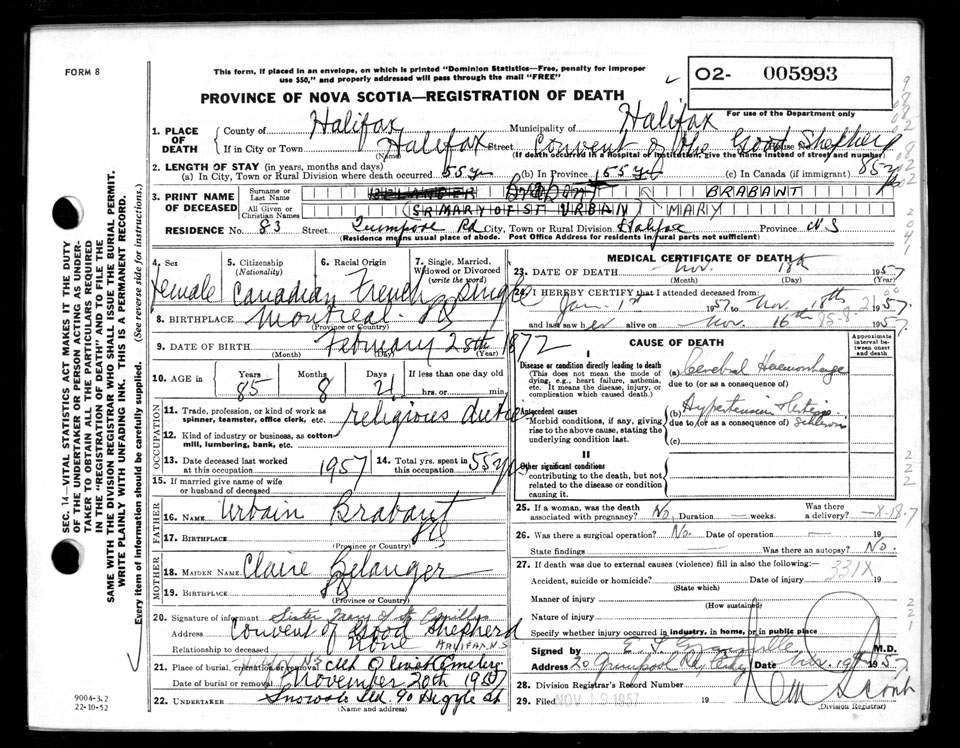 FORM 8
This form, if placed in an envelope, on which is printed "Dominion Statistics—Free, penalty for improper
use $50," and properly addressed will pass through the mail "FREE"
02- 005993
PROVINCE OF NOVA SCOTIA—REGISTRATION OF DEATH
For use of the Department only
1. PLACE OF DEATH
County of Halifax Municipality of Halifax
If in City or Town Halifax Street Convent of the Good Shepherd House No.
(Name) (If death occurred in a hospital or institution, give the name instead of street and number)
2. LENGTH OF STAY (in years, months and days)
(a) In City, Town or Rural Division where death occurred 55 yrs (b) In Province 55 yrs (c) In Canada (if immigrant) 85 yrs
3. PRINT NAME OF DECEASED
Surname or Last Name BELANGER BRABANT BRABANT
All Given or Christian Names (SR MARY OF ST URBAN) MARY
RESIDENCE No. 83 Street Quinpool Rd City, Town or Rural Division Halifax Province N S
(Residence means usual place of abode. Post Office Address for residents in rural parts not sufficient)
4. Sex female
5. Citizenship (Nationality) Canadian
6. Racial Origin French
7. Single, Married, Widowed or Divorced (write the word) Single
8. BIRTHPLACE Montreal
(Province or Country)
9. DATE OF BIRTH February 28th 1872
(Month) (Day) (Year)
10. AGE in Years 85 Months 8 Days 21 If less than one day old hrs. or min.
OCCUPATION
11. Trade, profession, or kind of work as spinner, teamster, office clerk, etc. religious duties
12. Kind of industry or business, as cotton mill, lumbering, bank, etc.
13. Date deceased last worked at this occupation 1957
14. Total yrs. spent in this occupation 55 yrs
15. If married give name of wife or husband of deceased
FATHER
16. NAME Urbain Brabant
17. BIRTHPLACE
(Province or Country)
MOTHER
18. MAIDEN NAME Claire Belanger
19. BIRTHPLACE
(Province or Country)
20. Signature of informant Sister Mary of St
Address Convent of Good Shepherd
Relationship to deceased none HALIFAX NS
21. Place of burial, cremation or removal Mt Olivet Cemetery
Date of burial or removal November 20th 1957
22. UNDERTAKER Snows Ltd. 90 Argyle St
(Name and address)
MEDICAL CERTIFICATE OF DEATH
23. DATE OF DEATH Nov. 18th 1957
(Month) (Day) (Year)
24. I HEREBY CERTIFY that I attended deceased from:
Jan. 1st 1957 Nov. 18th 1957
and last saw her alive on Nov. 16th 1957
CAUSE OF DEATH
Approximate interval between onset and death
I
Disease or condition directly leading to death
(This does not mean the mode of dying, e.g., heart failure, asthenia, etc. It means the disease, injury, or complication which caused death.)
(a) Cerebral Haemorrhage
due to (or as a consequence of)
Antecedent causes
Morbid conditions, if any, giving rise to the above cause, stating the underlying condition last.
(b) Hypertension
due to (or as a consequence of)
(c)
II
Other significant conditions
contributing to the death, but not related to the disease or condition causing it.
25. If a woman, was the death associated with pregnancy? No. Duration — weeks. Was there a delivery?
26. Was there a surgical operation? No. Date of operation —
State findings — Was there an autopsy? No.
27. If death was due to external causes (violence) fill in also the following:
331X
Accident, suicide or homicide? Date of injury 19
(State which)
Manner of injury
(How sustained)
Nature of injury
Specify whether injury occurred in industry, in home, or in public place
Signed by M.D.
Address 20 Date Nov. 19th 1957
28. Division Registrar's Record Number
29. Filed NOV 19 1957 19
(Division Registrar)
SEC. 14—VITAL STATISTICS ACT MAKES IT THE DUTY
OF THE UNDERTAKER OR PERSON ACTING AS UNDER-
TAKER TO OBTAIN ALL THE PARTICULARS REQUIRED
IN THE "REGISTRATION OF DEATH" AND TO FILE THE
SAME WITH THE DIVISION REGISTRAR WHO SHALL ISSUE THE BURIAL PERMIT.
WRITE PLAINLY WITH UNFADING INK. THIS IS A PERMANENT RECORD.
Every item of information should be carefully supplied. (See reverse side for instructions.)
9004-3.2
22-10-52